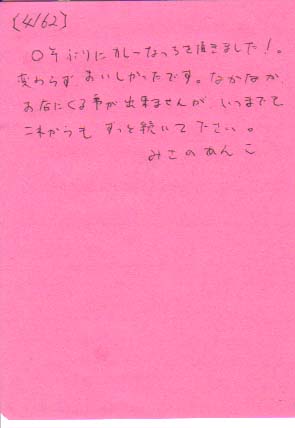 [4/62]
〇年ぶりにカレーなっとうを頂きました!。
変わらず おいしかったです。なかなか
お店にくる事が出来ませんが、いつまでも
これからも ずっと続いて下さい。
みさのあんこ